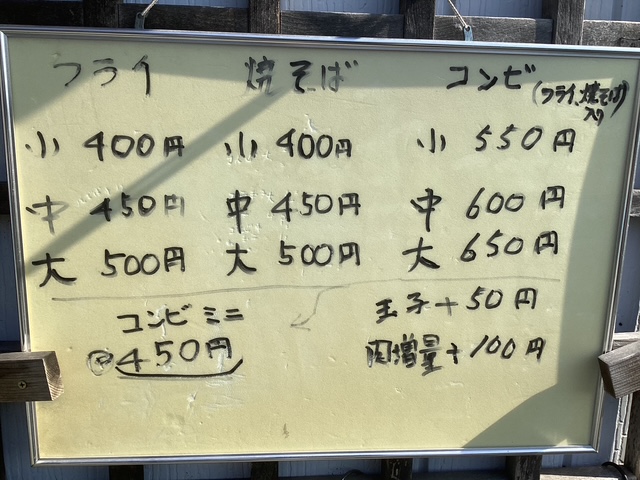 フライ 焼そば コンビ (フライ、焼そば入り)
小 400円 小 400円 小 550円
中 450円 中 450円 中 600円
大 500円 大 500円 大 650円
コンビミニ 玉子+50円
450円 肉増量+100円